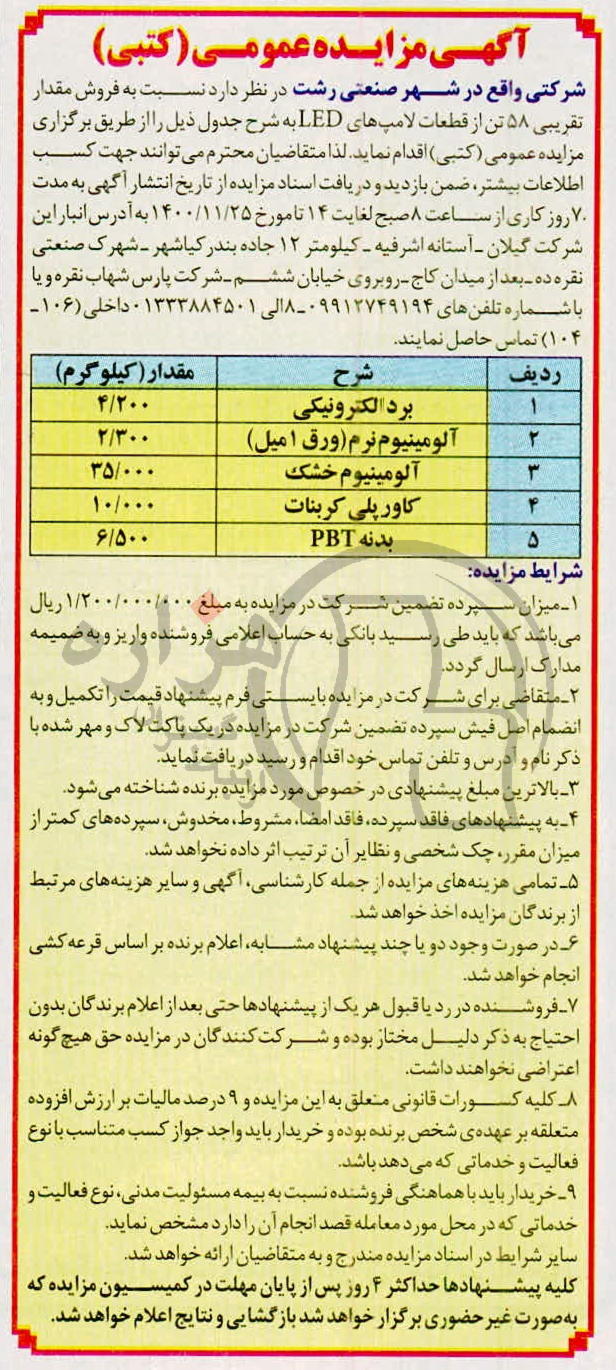 آگهی مزایده عمومی (کتبی)
شرکتی واقع در شهر صنعتی رشت در نظر دارد نسبت به فروش مقدار
تقریبی ۵۸ تن از قطعات لامپ‌های LED به شرح جدول ذیل را از طریق برگزاری
مزایده عمومی (کتبی) اقدام نماید. لذا متقاضیان محترم می‌توانند جهت کسب
اطلاعات بیشتر، ضمن بازدید و دریافت اسناد مزایده از تاریخ انتشار آگهی به مدت
۷۰ روز کاری از ساعت ۸ صبح لغایت ۱۴ تا مورخ ۱۴۰۰/۱۱/۲۵ به آدرس انبار این
شرکت گیلان ـ آستانه اشرفیه ـ کیلومتر ۱۲ جاده بندر کیاشهر ـ شهرک صنعتی
نقره ده ـ بعد از میدان کاج ـ روبروی خیابان ششم ـ شرکت پارس شهاب نقره و یا
با شماره تلفن‌های ۰۹۹۱۲۷۴۹۱۹۴ ـ ۸ الی ۰۱۳۳۳۸۸۴۵۰۱ داخلی (۱۰۶ ـ
۱۰۴) تماس حاصل نمایند.
ردیف شرح مقدار (کیلوگرم)
۱ برد الکترونیکی ۴/۲۰۰
۲ آلومینیوم نرم (ورق ۱ میل) ۲/۳۰۰
۳ آلومینیوم خشک ۳۵/۰۰۰
۴ کاور پلی کربنات ۱۰/۰۰۰
۵ بدنه PBT ۶/۵۰۰
شرایط مزایده:
۱ـ میزان سپرده تضمین شرکت در مزایده به مبلغ ۱/۲۰۰/۰۰۰/۰۰۰ ریال
می‌باشد که باید طی رسید بانکی به حساب اعلامی فروشنده واریز و به ضمیمه
مدارک ارسال گردد.
۲ـ متقاضی برای شرکت در مزایده بایستی فرم پیشنهاد قیمت را تکمیل و به
انضمام اصل فیش سپرده تضمین شرکت در مزایده در یک پاکت لاک و مهر شده با
ذکر نام و آدرس و تلفن تماس خود اقدام و رسید دریافت نماید.
۳ـ بالاترین مبلغ پیشنهادی در خصوص مورد مزایده برنده شناخته می‌شود.
۴ـ به پیشنهادهای فاقد سپرده، فاقد امضا، مشروط، مخدوش، سپرده‌های کمتر از
میزان مقرر، چک شخصی و نظایر آن ترتیب اثر داده نخواهد شد.
۵ـ تمامی هزینه‌های مزایده از جمله کارشناسی، آگهی و سایر هزینه‌های مرتبط
از برندگان مزایده اخذ خواهد شد.
۶ـ در صورت وجود دو یا چند پیشنهاد مشابه، اعلام برنده بر اساس قرعه کشی
انجام خواهد شد.
۷ـ فروشنده در رد یا قبول هر یک از پیشنهادها حتی بعد از اعلام برندگان بدون
احتیاج به ذکر دلیل مختار بوده و شرکت کنندگان در مزایده حق هیچ گونه
اعتراضی نخواهند داشت.
۸ـ کلیه کسورات قانونی متعلق به این مزایده و ۹ درصد مالیات بر ارزش افزوده
متعلقه بر عهده‌ی شخص برنده بوده و خریدار باید واجد جواز کسب متناسب با نوع
فعالیت و خدماتی که می‌دهد باشد.
۹ـ خریدار باید با هماهنگی فروشنده نسبت به بیمه مسئولیت مدنی، نوع فعالیت و
خدماتی که در محل مورد معامله قصد انجام آن را دارد مشخص نماید.
سایر شرایط در اسناد مزایده مندرج و به متقاضیان ارائه خواهد شد.
کلیه پیشنهادها حداکثر ۴ روز پس از پایان مهلت در کمیسیون مزایده که
به صورت غیر حضوری برگزار خواهد شد بازگشایی و نتایج اعلام خواهد شد.
هزاره